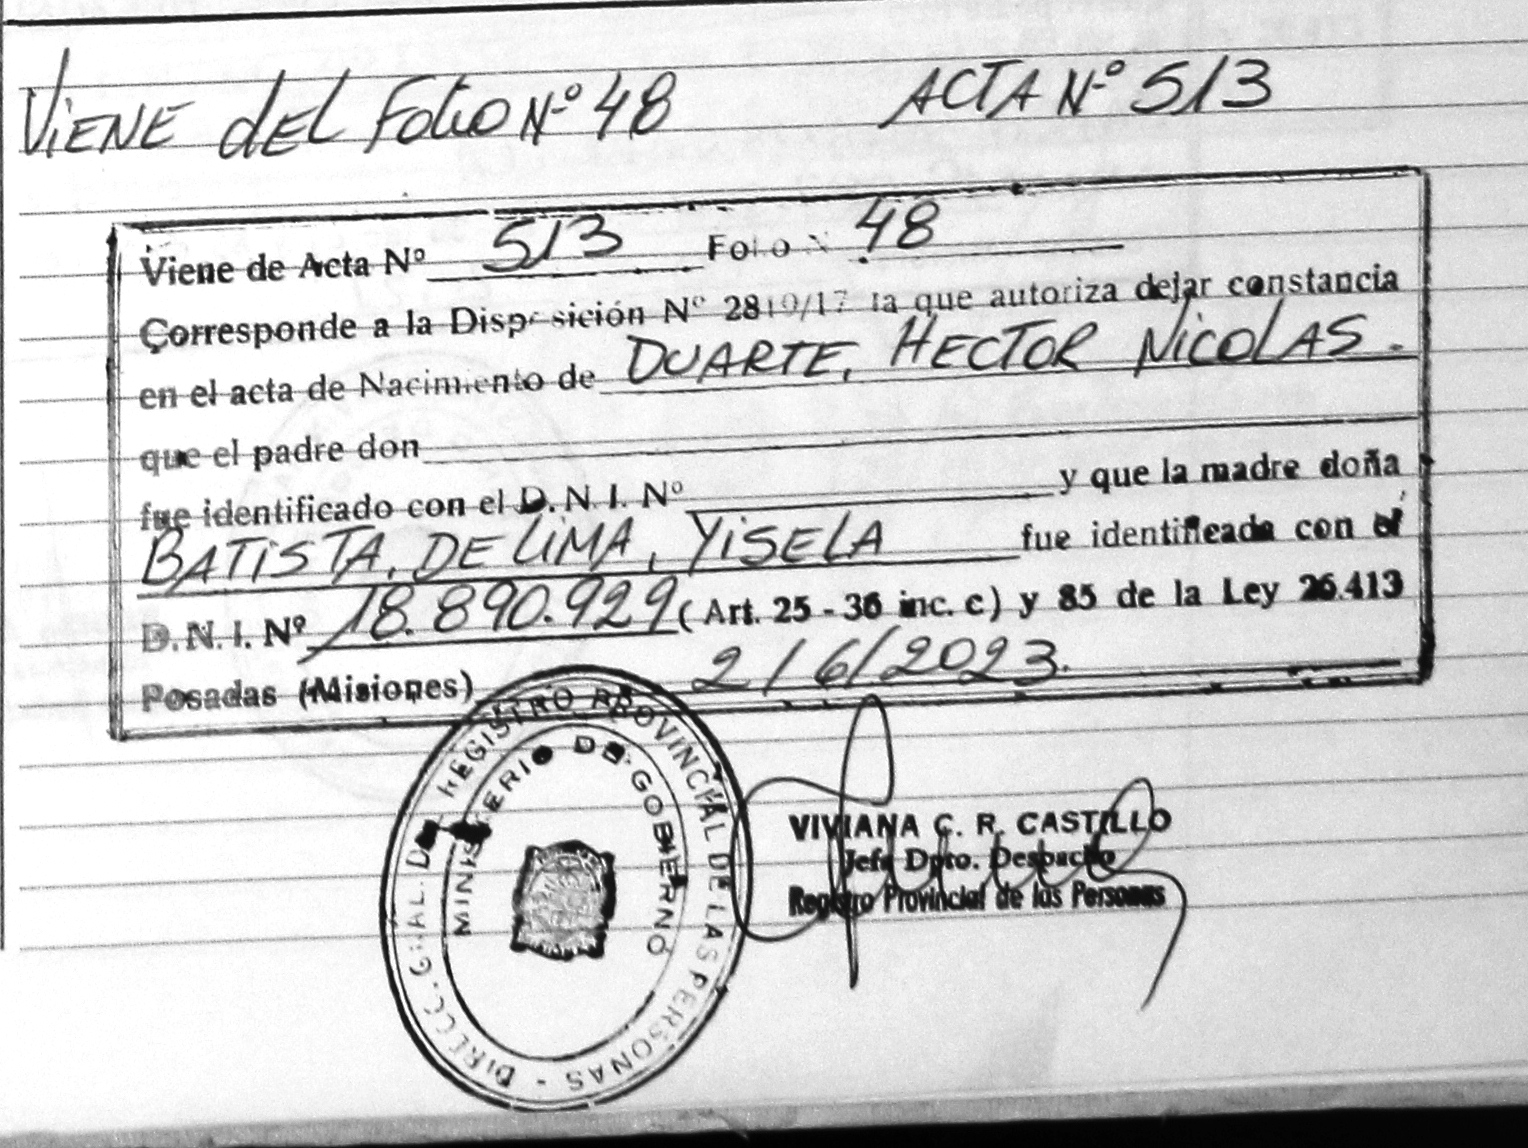 Viene del Folio Nº 48 ACTA Nº 513
Viene de Acta Nº 513 Folio N 48
Corresponde a la Disposición Nº 2810/17 la que autoriza dejar constancia
en el acta de Nacimiento de DUARTE, HECTOR NICOLAS.
que el padre don
fue identificado con el D.N.I. Nº y que la madre doña
BATISTA, DE LIMA, YISELA fue identificada con el
D.N.I. Nº 18.890.929 (Art. 25 - 36 inc. c) y 85 de la Ley 26.413
Posadas (Misiones) 2/6/2023.
DIRECC. GRAL. DEL REGISTRO PROVINCIAL DE LAS PERSONAS -
MINISTERIO DE GOBIERNO
VIVIANA C. R. CASTILLO
Jefa Dpto. Despacho
Registro Provincial de las Personas